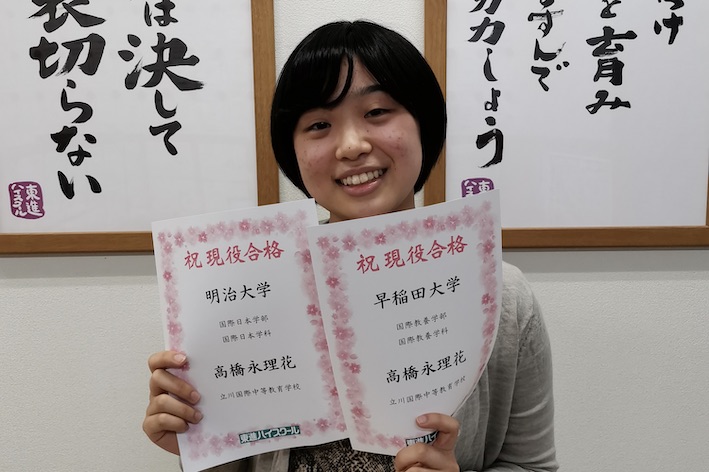 は決して
裏切らない
東進
ハイスクール
け
と育み
すんで
力しょう
東進
ハイスクール
祝 現役合格
明治大学
国際日本学部
国際日本学科
高橋永理花
立川国際中等教育学校
東進ハイスクール
祝 現役合格
早稲田大学
国際教養学部
国際教養学科
高橋永理花
立川国際中等教育学校
東進